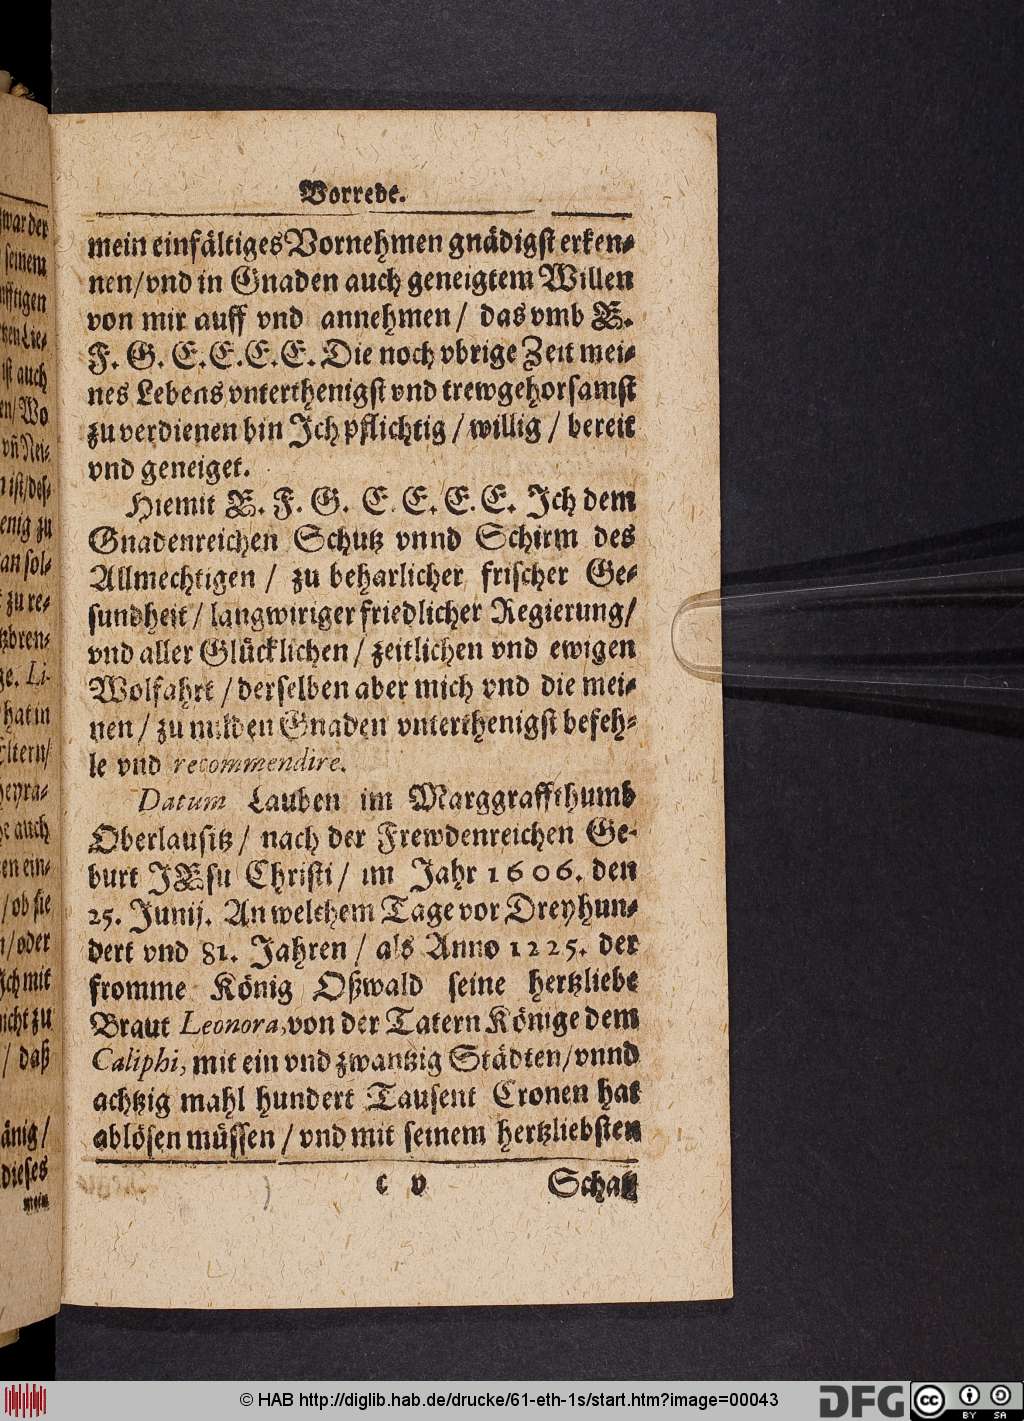 Vorrede.
mein einfältiges Vornehmen gnädigst erken-
nen/vnd in Gnaden auch geneigtem Willen
von mir auff vnd annehmen/ das vmb E.
F. G. E.E.E.E. Die noch vbrige Zeit mei-
nes Lebens vnterthenigst vnd trewgehorsamst
zu verdienen bin Ich pflichtig/willig/bereit
vnd geneiget.
Hiemit E. F. G. E. E. E. E. Ich dem
Gnadenreichen Schutz vnnd Schirm des
Allmechtigen/ zu beharlicher frischer Ge-
sundheit/langwiriger friedlicher Regierung/
vnd aller Glücklichen/zeitlichen vnd ewigen
Wolfahrt/derselben aber mich vnd die mei-
nen/zu milden Gnaden vnterthenigst befeh-
le vnd recommendire.
Datum Lauben im Marggraffthumb
Oberlausitz/ nach der Frewdenreichen Ge-
burt JEsu Christi/ im Jahr 1606. den
25. Junij. An welchem Tage vor Dreyhun-
dert vnd 81. Jahren/ als Anno 1225. der
fromme König Oßwald seine hertzliebe
Braut Leonora, von der Tatern Könige dem
Caliphi, mit ein vnd zwantzig Städten/vnnd
achtzig mahl hundert Tausent Cronen hat
ablösen müssen/vnd mit seinem hertzliebsten
c v Schatz
zwar der
seinem
ist auch
en/Wo
enig zu
an sol-
zu re-
ge. Li-
hat in
he auch
/ob sie
n/oder
Ich mit
nicht zu
/ daß
dieses
mein
© HAB http://diglib.hab.de/drucke/61-eth-1s/start.htm?image=00043
DFG
cc
BY SA